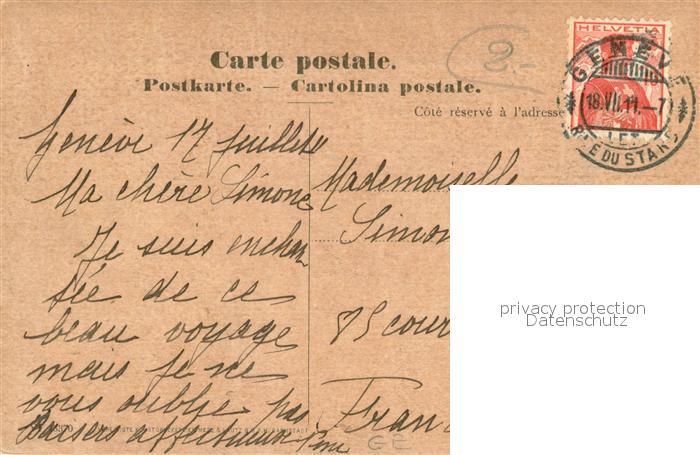 Carte postale.
Postkarte. — Cartolina postale.
Côté réservé à l'adresse
HELVETIA
GENÈV
18.VII.11.—7
RUE DU STAND
2.-
Genève 17 juillet
Ma chère Simone
Je suis enchan
tée de ce
beau voyage
mais je ne
vous oublie pas
Baisers affectueux
Mademoiselle
Simon
85 cour
Fran
GE
privacy protection
Datenschutz